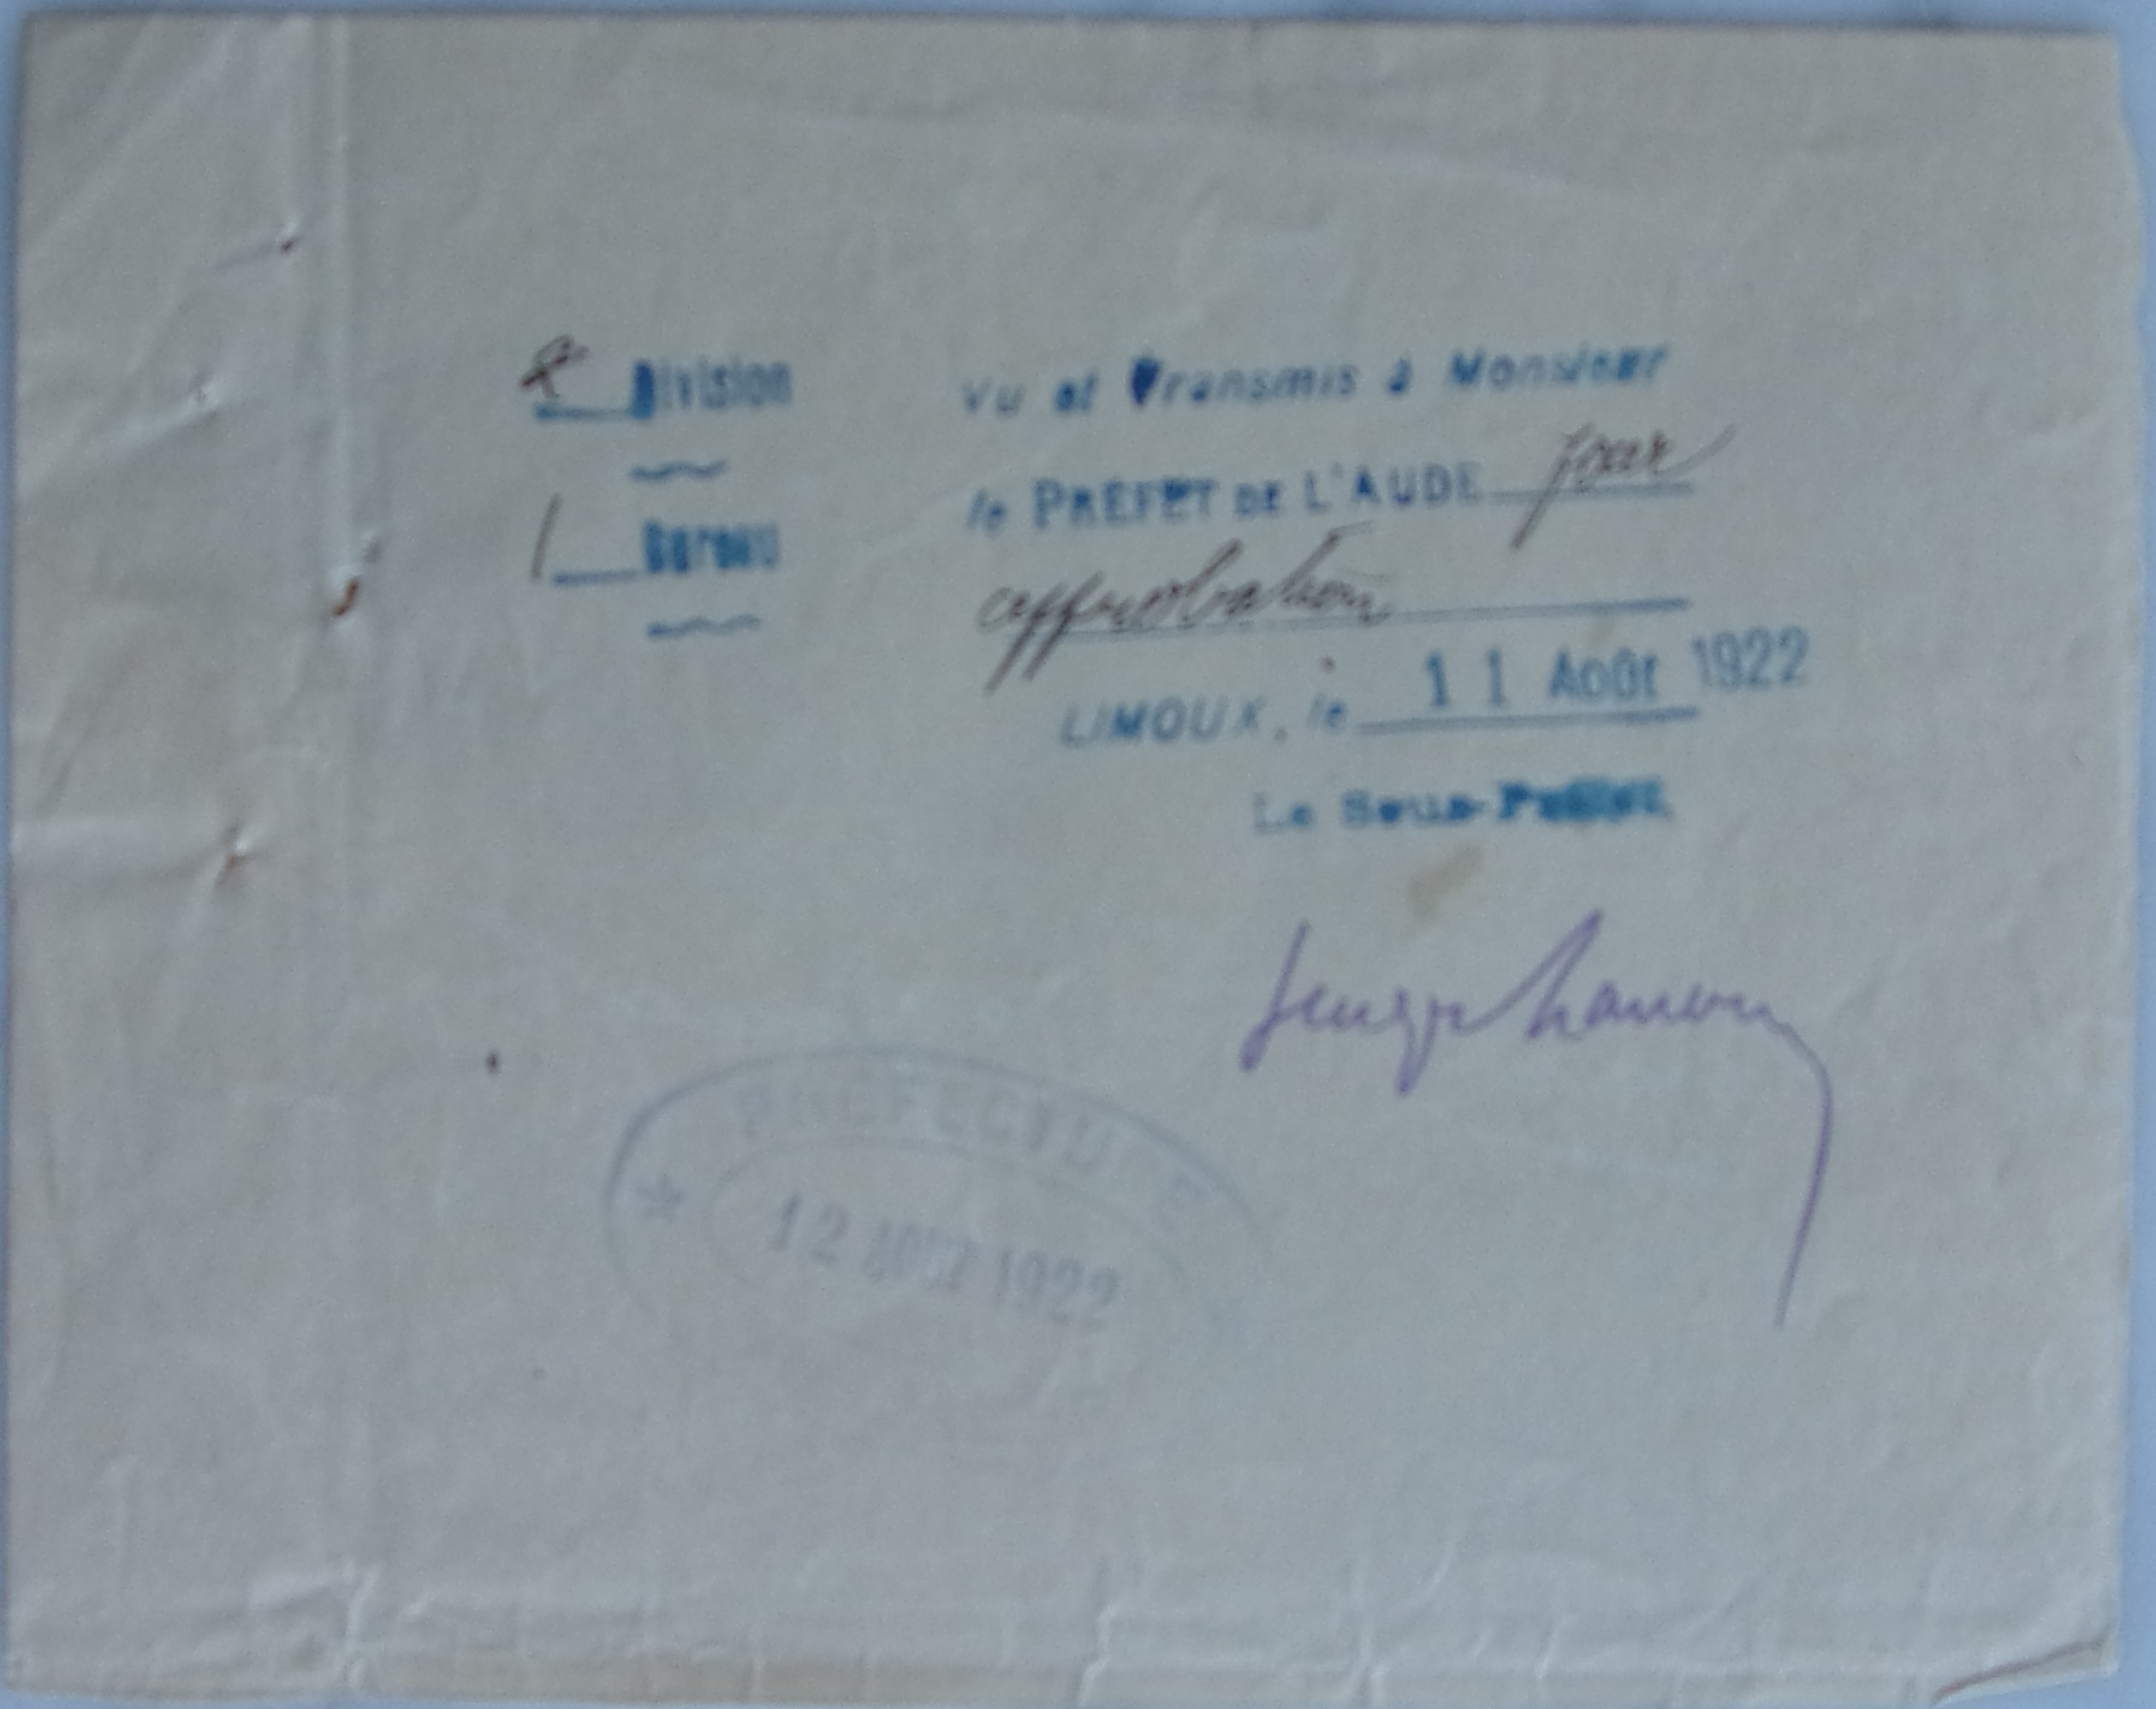 Division
Vu et Transmis à Monsieur
le PRÉFET DE L'AUDE pour
1 Bureau
approbation
LIMOUX, le 11 Août 1922
Le Sous-Préfet,
PREFECTURE
12 AOUT 1922